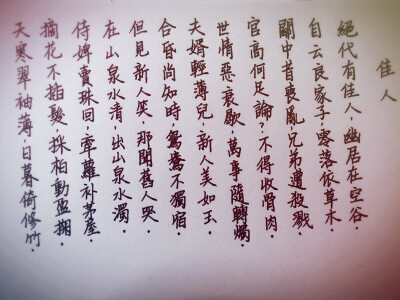 佳人
絕代有佳人，幽居在空谷。
自云良家子，零落依草木。
關中昔喪亂，兄弟遭殺戮。
官高何足論？不得收骨肉。
世情惡衰歇，萬事隨轉燭。
夫婿輕薄兒，新人美如玉。
合昏尚知時，鴛鴦不獨宿。
但見新人笑，那聞舊人哭。
在山泉水清，出山泉水濁。
侍婢賣珠回，牽蘿補茅屋。
摘花不插髮，採柏動盈掬。
天寒翠袖薄，日暮倚修竹。